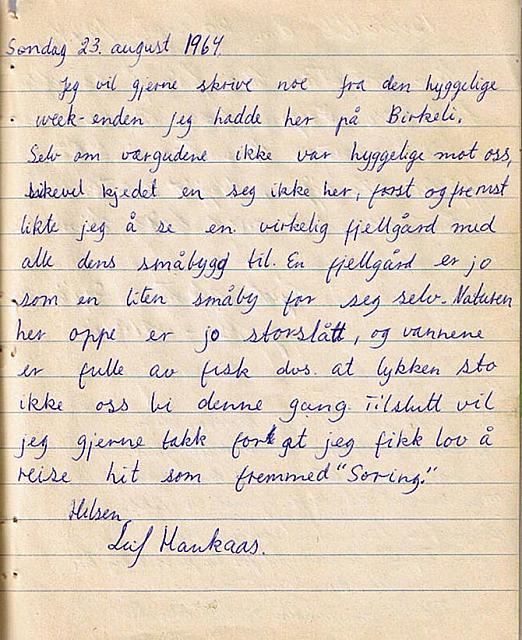 Søndag 23. august 1964.
Jeg vil gjerne skrive noe fra den hyggelige
week-enden jeg hadde her på Birkeli.
Selv om værgudene ikke var hyggelige mot oss,
likevel kjedet en seg ikke her, først og fremst
likte jeg å se en virkelig fjellgård med
alle dens småbygg til. En fjellgård er jo
som en liten småby for seg selv. Naturen
her oppe er jo storslått, og vannene
er fulle av fisk dvs. at lykken sto
ikke oss bi denne gang. Tilslutt vil
jeg gjerne takk for at jeg fikk lov å
reise hit som fremmed "Søring."
Hilsen
Leif Haukaas.